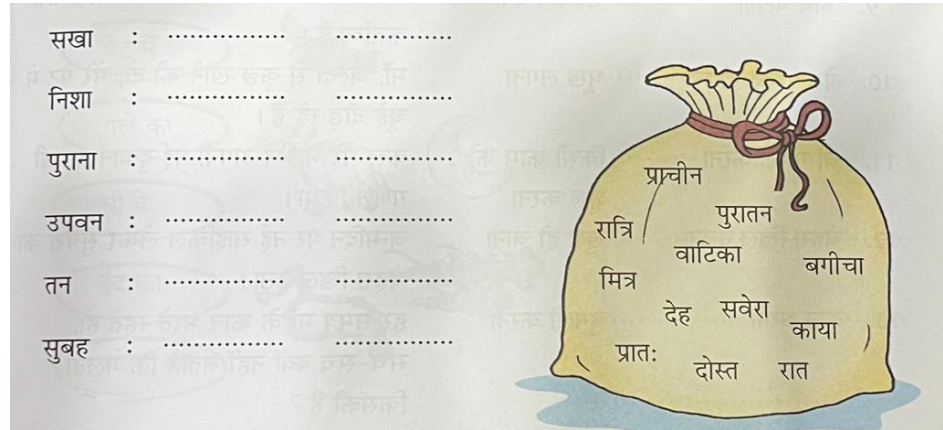 सखा : ................. .................
निशा : ................. .................
पुराना : ................. .................
उपवन : ................. .................
तन : ................. .................
सुबह : ................. .................
प्राचीन
रात्रि पुरातन
वाटिका बगीचा
मित्र
देह सवेरा काया
प्रात:
दोस्त रात